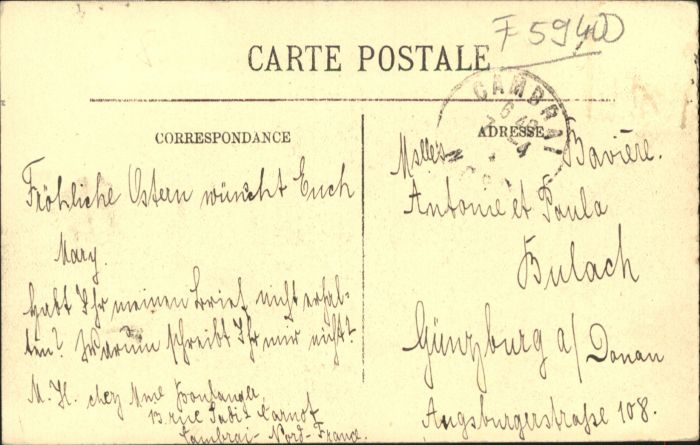 F 5940D
CARTE POSTALE
CAMBRAI
CORRESPONDANCE
ADRESSE
Fröhliche Ostern wünscht Euch
Mary.
Habt Ihr meinen Brief nicht erhal-
ten? Warum schreibt Ihr mir nicht?
M. H. chez Mme Boulanger,
13 rue Sadi Carnot
Cambrai - Nord - France.
Melles Bavière.
Antonie et Paula
Bulach
Günzburg a/ Donau
Augsburgerstraße 108.